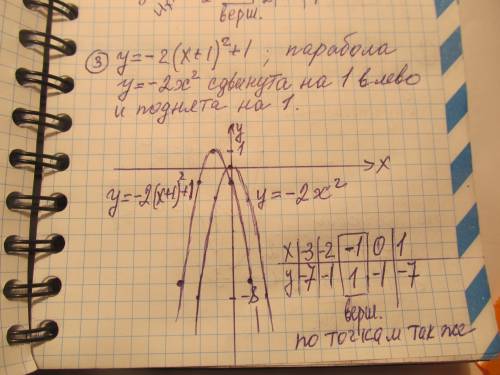 верш.
③ y=-2(x+1)²+1; парабола
y=-2x² сдвинута на 1 влево
и поднята на 1.
y
1
x
y=-2(x+1)²+1
y=-2x²
-8
x -3 -2 -1 0 1
y -7 -1 1 -1 -7
верш.
по точкам так же